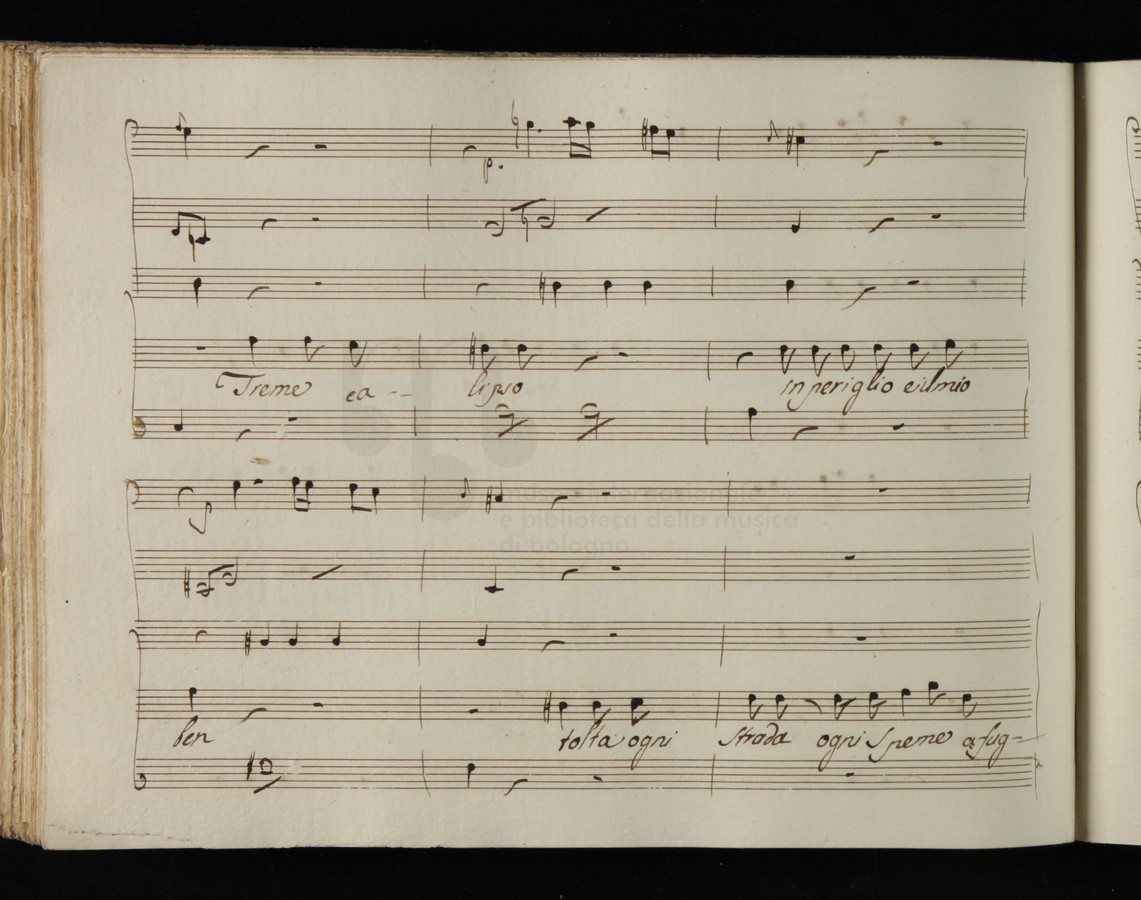 p.
Treme ca -- lipso in periglio e il mio
museo internazionale
e biblioteca della musica
di bologna
ben tolta ogni strada ogni speme a fug-